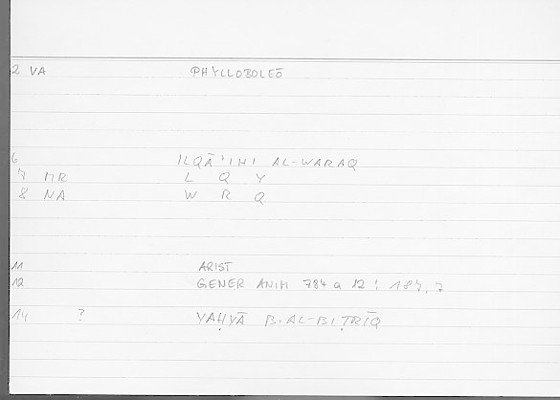 2 VA PHYLLOBOLEŌ
6 ILQĀ'IHI AL-WARAQ
7 MR L Q Y
8 NA W R Q
11 ARIST
12 GENER ANIM 784 a 12 ; 184, 7
14 ? YAḤYĀ B. AL-BIṬRĪQ